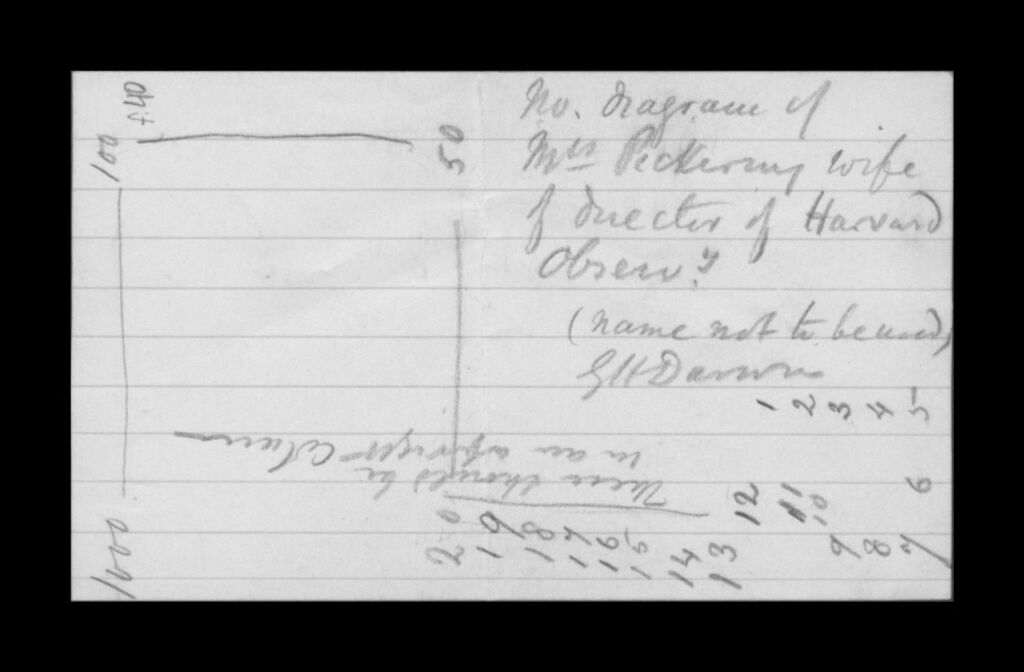 No. diagram of
Mrs Pickering wife
of director of Harvard
Observy
(name not to be used)
G H Darwin
1 2 3 4 5
6
7
8
9
10
11
12
13
14
15
16
17
18
19
20
These should be
in an upright column
50
100
1000